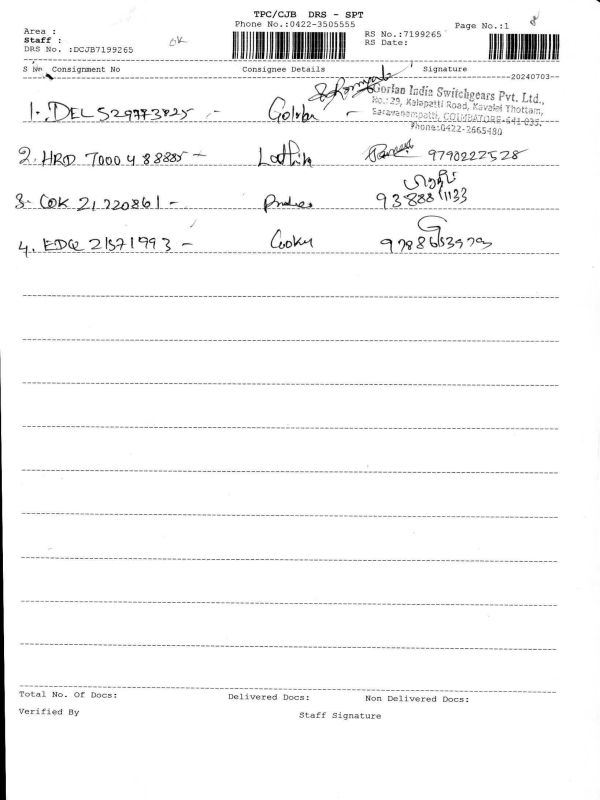 TPC/CJB DRS - SPT
Phone No.:0422-3505555
Page No.:1
Area :
Staff :
DRS No. :DCJB7199265
RS No.:7199265
RS Date:
S No Consignment No Consignee Details Signature
20240703
Gorlan India Switchgears Pvt. Ltd.,
No.: 29, Kalapatti Road, Kavalai Thottam,
Saravanampatti, COIMBATORE-641 035.
Phone:0422-2665480
1. DEL 529773825 -
2. HRD 7000488885 - 9790222528
3. COK 21720861 - 93888 11133
4. EDQ 21571993 -
Total No. Of Docs: Delivered Docs: Non Delivered Docs:
Verified By Staff Signature